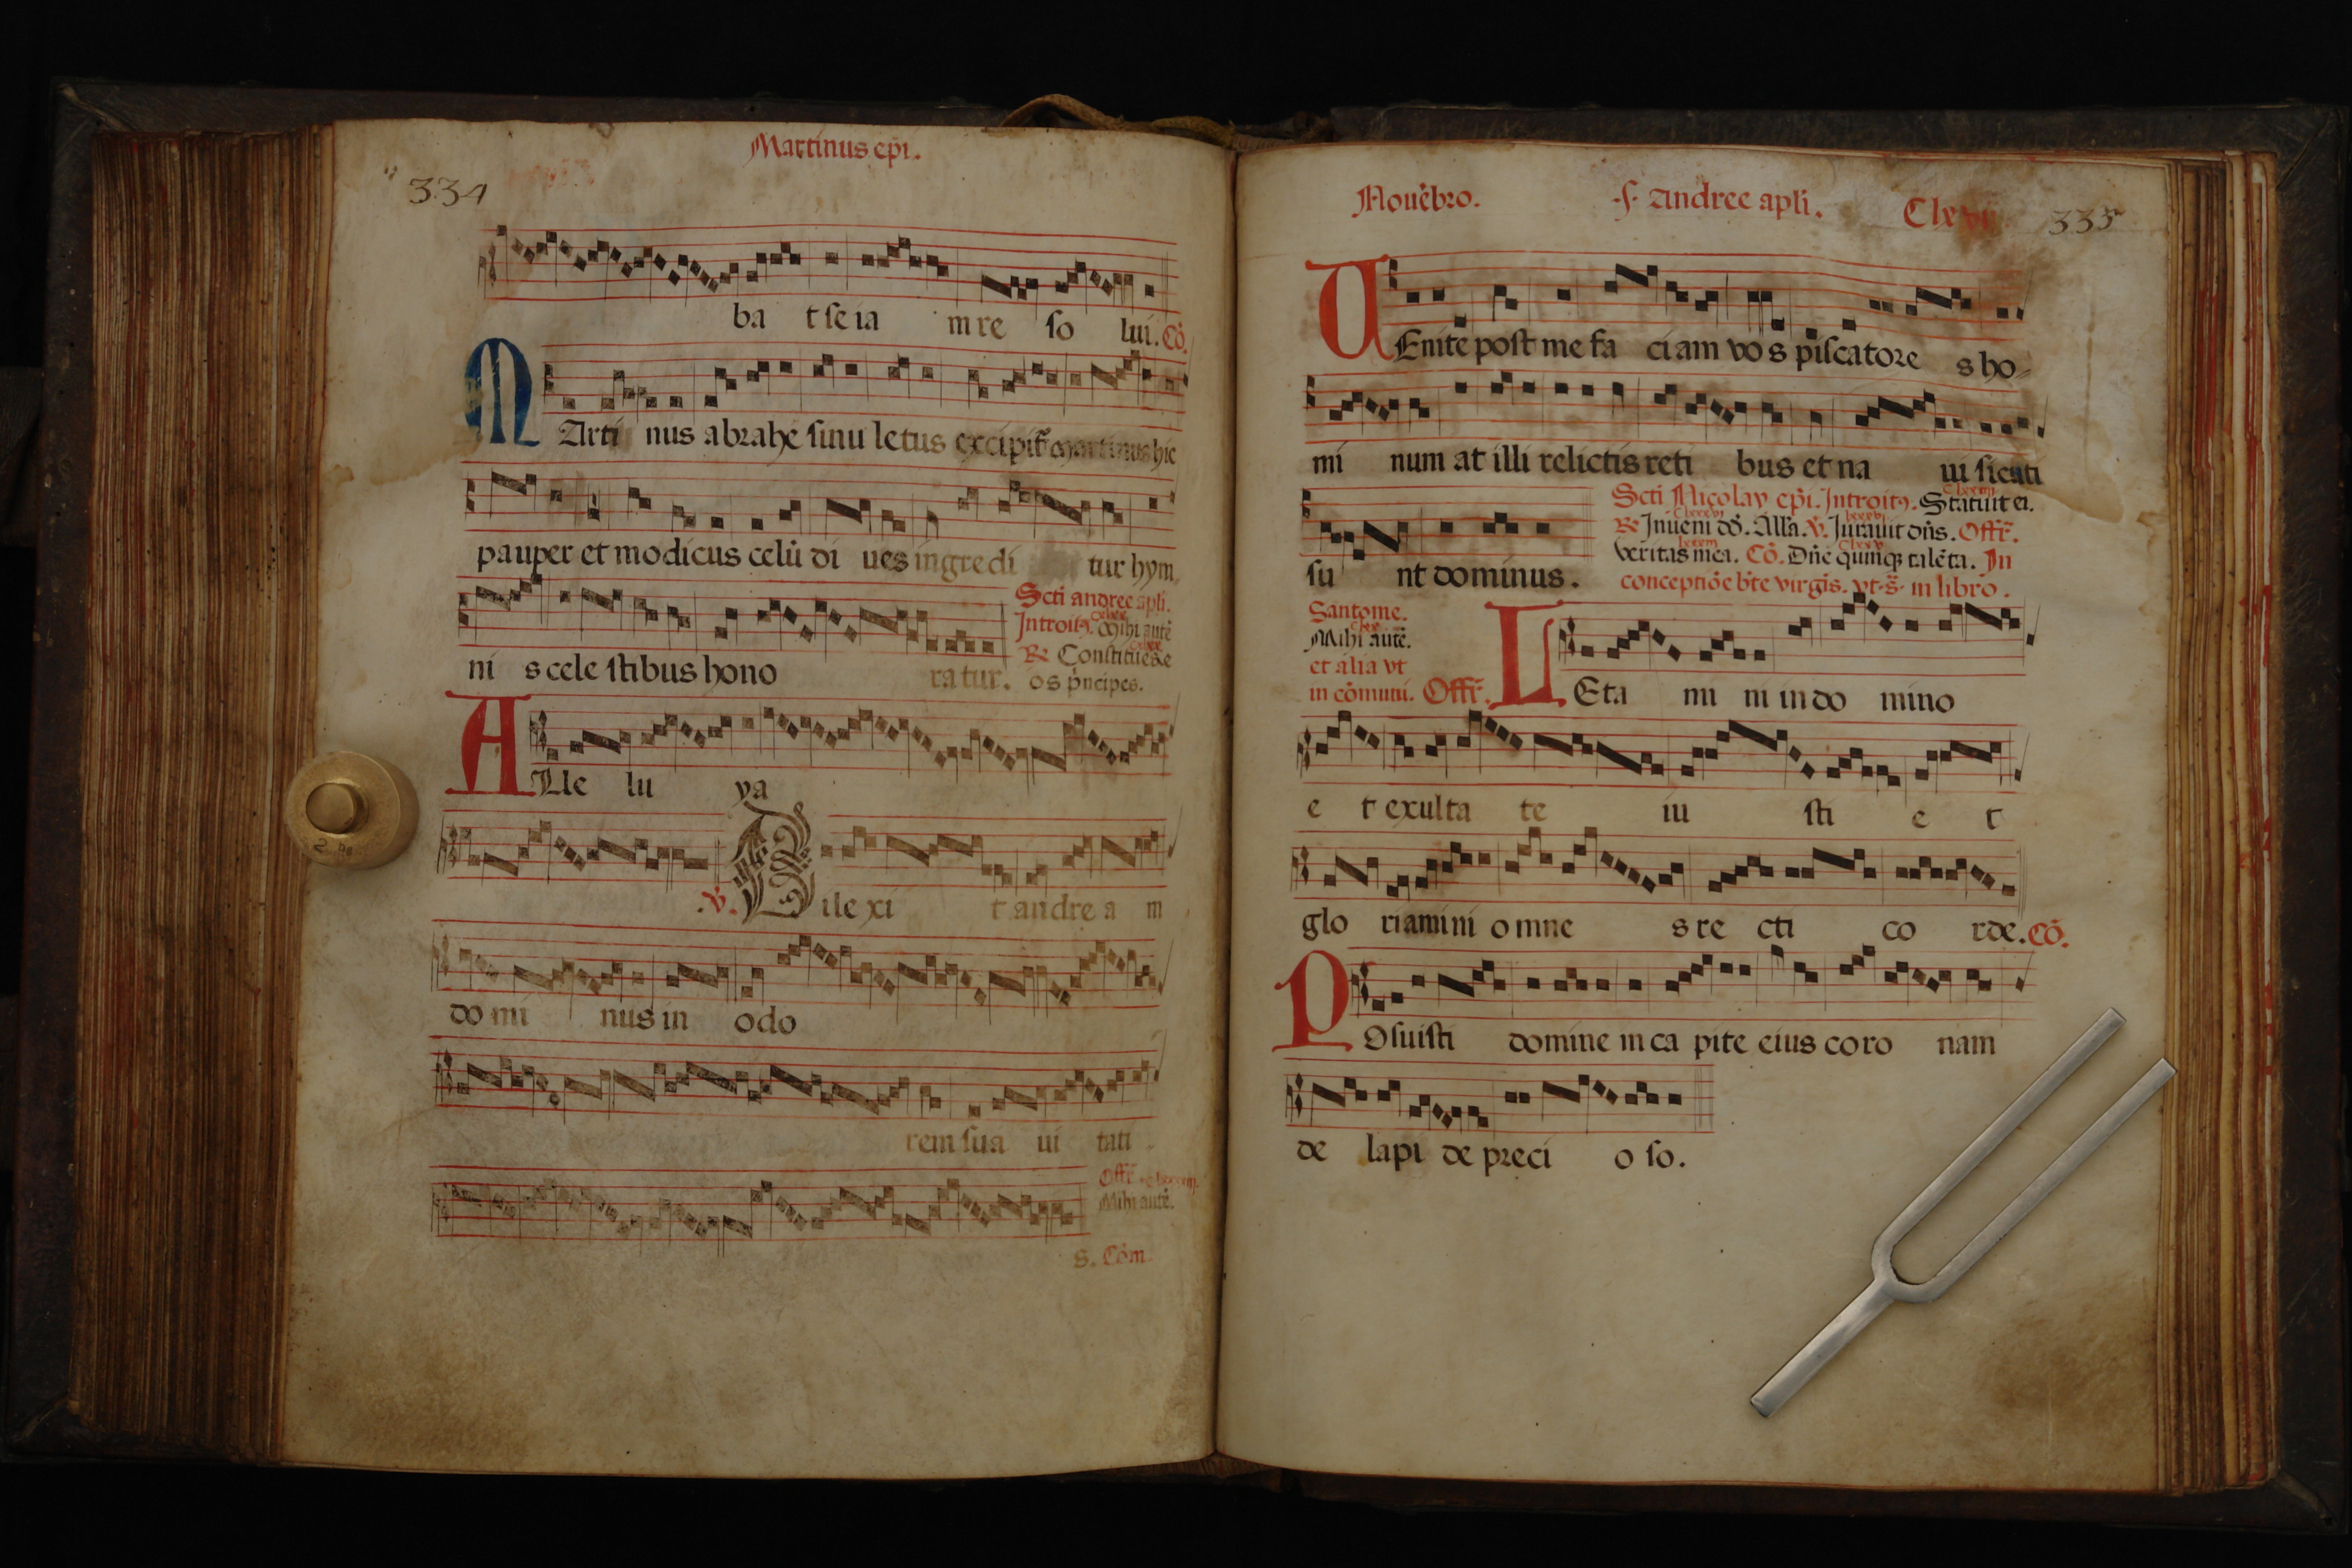 Martinus ep̄i.
334
ba t se ia m re so lui. Cō.
MArti nus abrahe sinu letus excipit̄ martinus hic
pauper et modicus celū di ues ingredi tur hym
ni s cele stibus hono ratur.
Scti andree apli.
Introitꝰ. Mihi autē
℟ Constitues e
os p̄ncipes.
ALle lu ya
℣. Dile xi t andre a m
do mi nus in odo
rem sua ui tati
Offr̄
Mihi autē.
s. Cōm.
Nouēbro. .S. Andree apli. Clxvi 335
UEnite post me fa ciam vo s piscatore s ho-
mi num at illi relictis reti bus et na ui secuti
su nt dominus.
Scti Nicolay ep̄i. Introitꝰ. Statuit ei.
℟ Inueni dō. Alla. ℣. Iurauit dn̄s. Offr̄.
veritas mea. Cō. Dn̄e quinqꝫ talēta. In
conceptiōe bt̄e virgīs. vt .s̄. in libro.
Santome.
Mihi autē.
et alia vt
in cōmuni. Offr̄.
LEta mi ni in do mino
e t exulta te iu sti e t
glo riamini o mne s re cti co rde. Cō.
POsuisti domine in ca pite eius co ro nam
de lapi de preci o so.